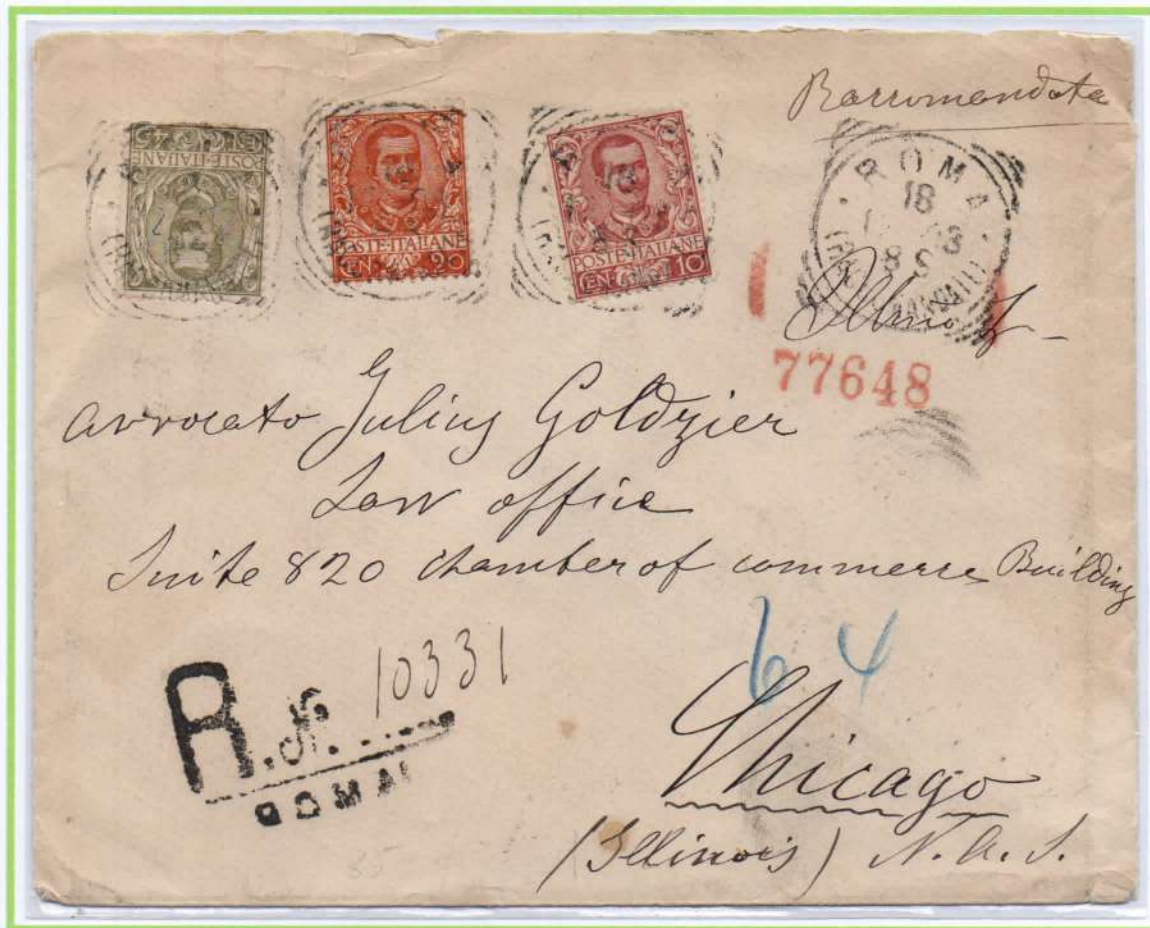 Raccomandata
45
POSTE·ITALIANE
POSTE·ITALIANE
CEN 20
POSTE·ITALIANE
CEN 10
ROMA
18
Illmo Sr
77648
avvocato Julius Goldzier
Law office
Suite 820 chamber of commerce Building
64
R. N. 10331
ROMA
Chicago
(Illinois) N. A. S.
35